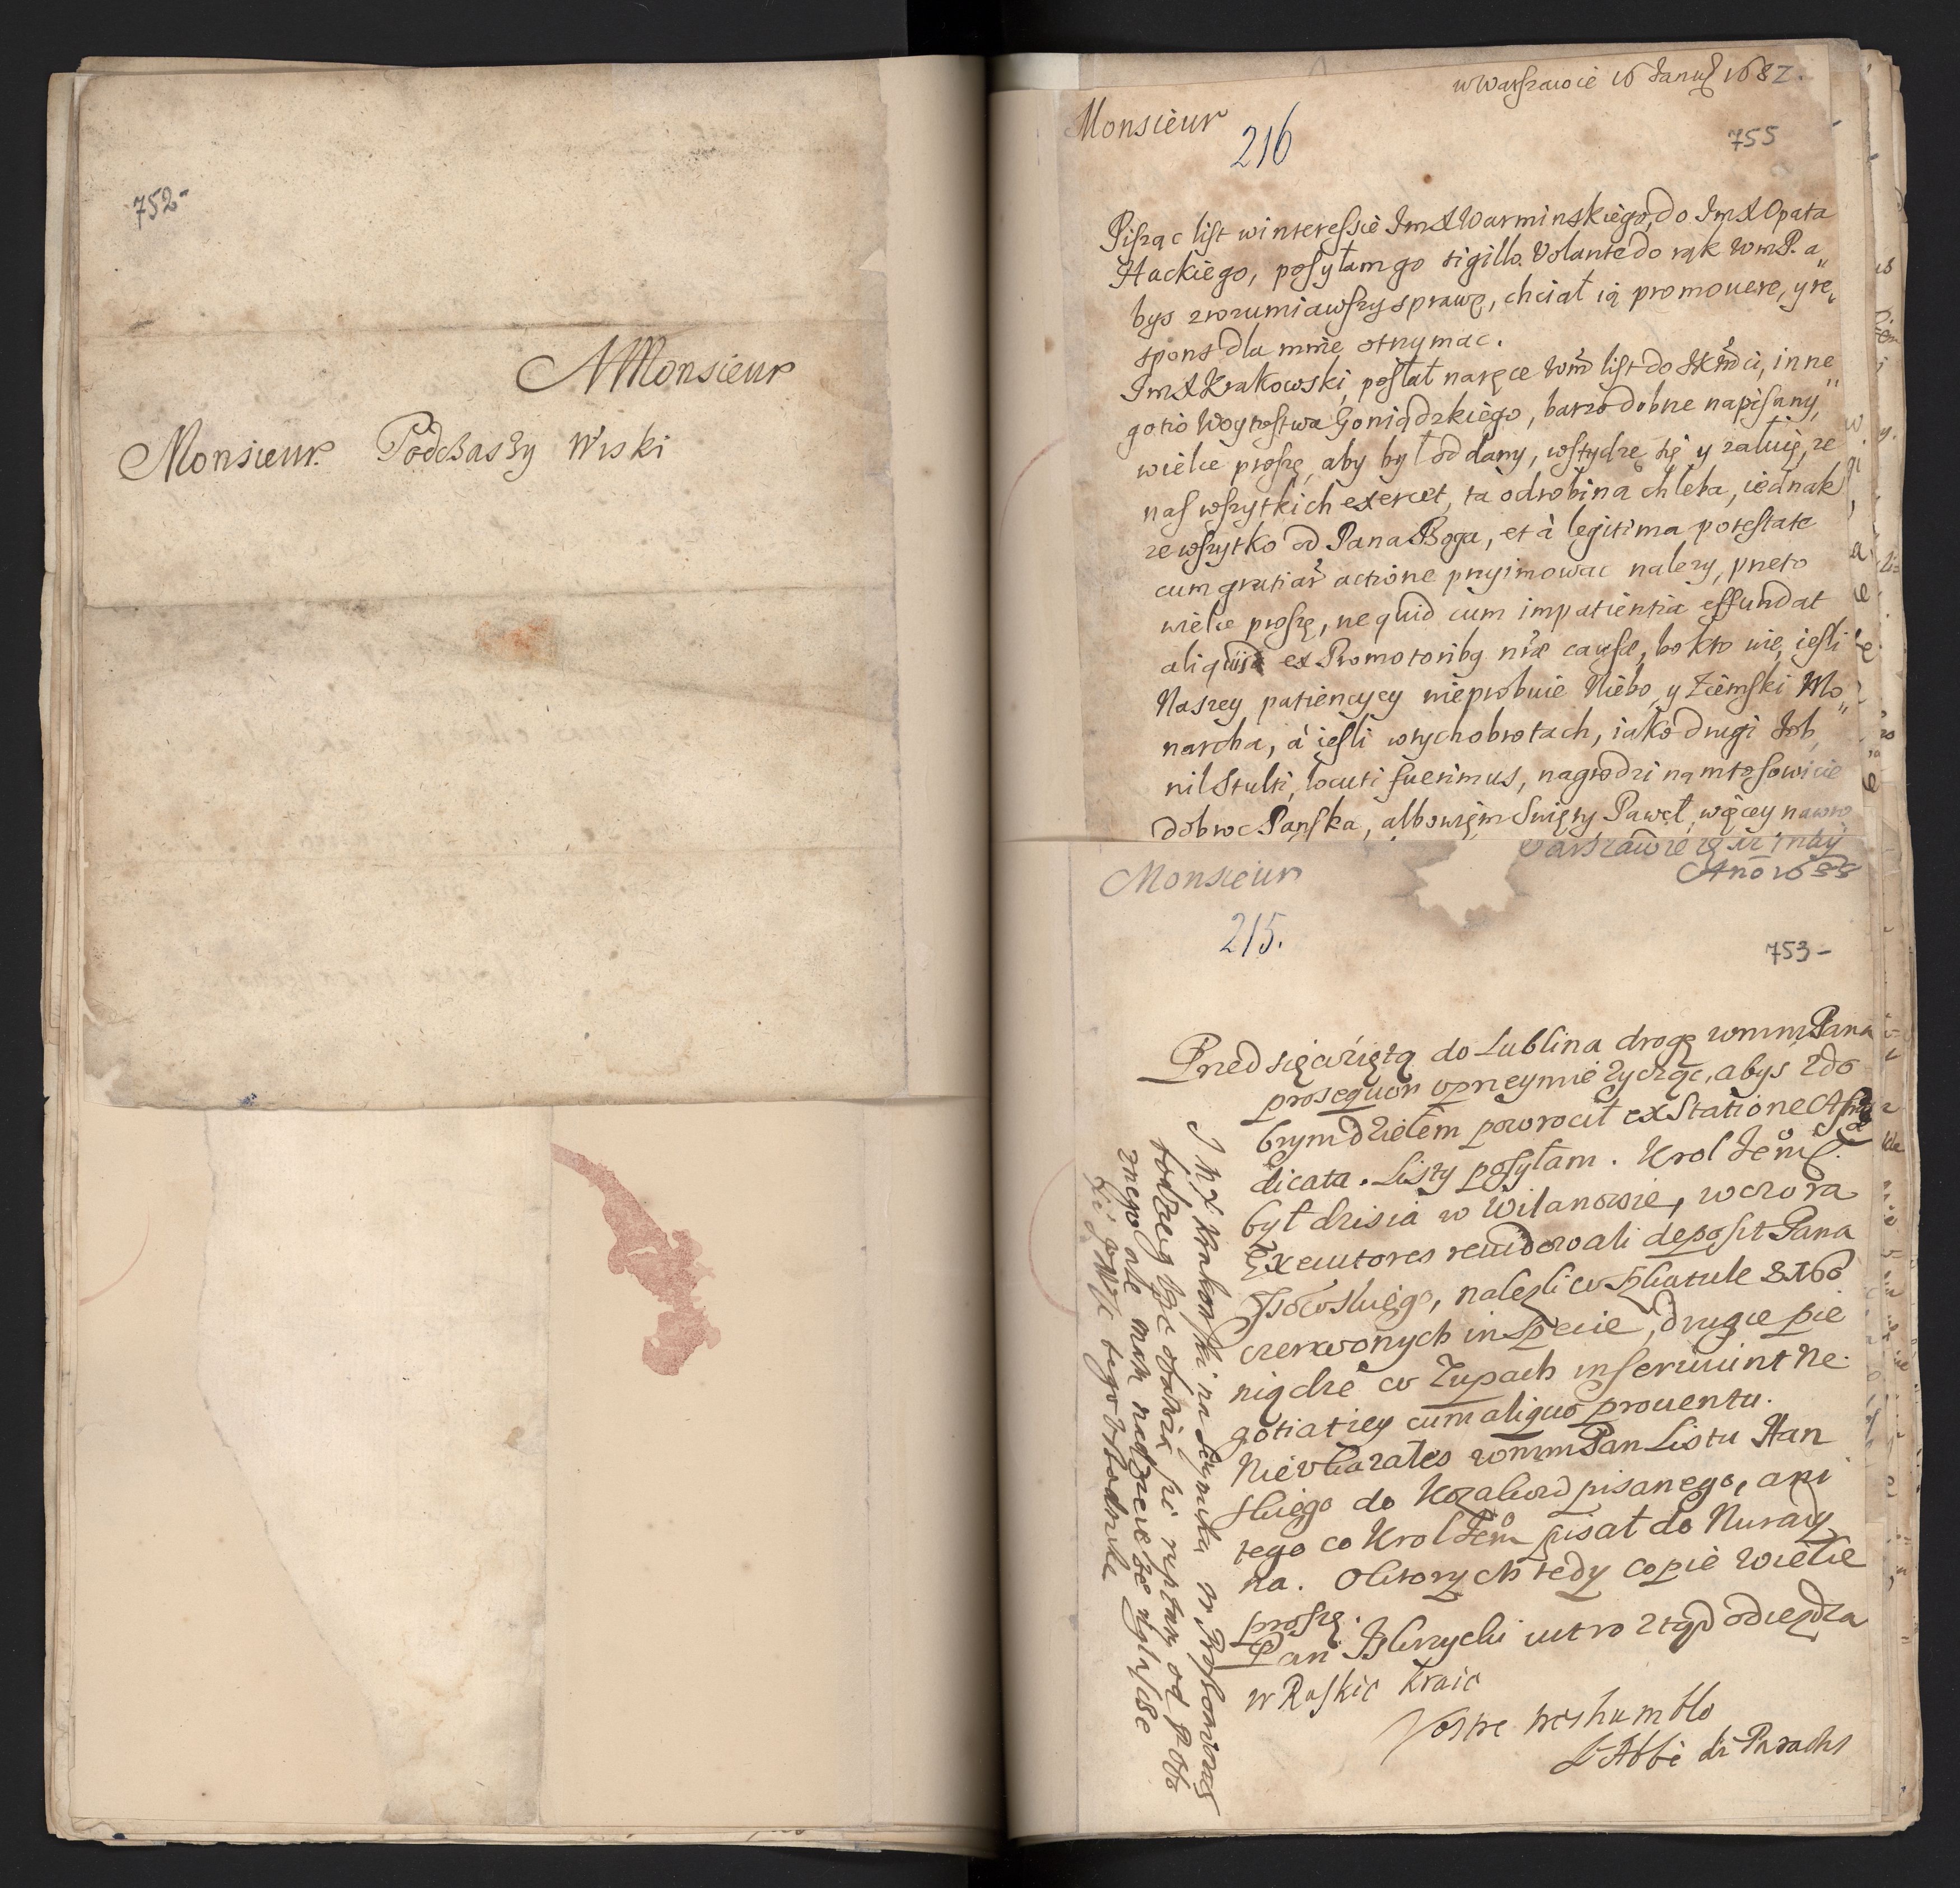 752-
A Monsieur
Monsieur Podczaszy Wiski
w Warszawie 16 Januar 1687.
Monsieur
216
755
Pisząc list w interessie ImX Warminskiego, do ImX Opata
Hackiego, posyłam go sigillo Volante do rąk WmP. a„
bys zrozumiawszy sprawę, chciał ią promouere, y re„
spons dla mnie otrzymac.
ImX Krakowski, posłał na ręce Wm list do JKMci, in ne„
gotio Woytostwa Goniądzkiego, barzo dobrze napisany,
wielce proszę, aby był oddany, wstydzę się y załuię, ze
nas wszytkich exercet, ta odrobina chleba, iednak
ze wszytko od Pana Boga, et à legitima potestate
cum gratiar actione przyimowac nalezy, przeto
wielce proszę, ne quid cum impatientia effundat
aliquis ex Promotoribq nrae causae, bo kto wie, iesli
Naszey patiencycy nieprobuie Niebo, y Ziemski Mo„
narcha, à iesli w tych obrotach, iako drugi Job,
nil Stulti, locuti fuerimus, nagrodzi nam to sowicie
dobroc Panska, albowięm Swięty Paweł, więcey nawro
Warszawie
Ano 1688
Monsieur
215.
753-
Przedsięwziętą do Lublina drogę wmmPana
prosequor uprzeymie zycząc, abys z do
brym dziełem powrocił ex Statione
dicata. Listy posyłam. Krol Jem
był dzisia w Wilanowie, wczora
Executores rewidowali deposit Pana
nalezli w Szkatule 8160
czerwonych in Specie, drugie pie
niądze w Zupach inseruiunt Ne
gotiatiey cum aliquo prouentu.
Nie ukazałes wmmPan Listu Han
skiego do Kozakow pisanego, ani
tego co Krol Jem pisał do Nurady
na. Oktorych tedy copie wielce
proszę.
Pan Ilinzycki iutro ztąd odiezdza
w Ruskie Kraie
Vostre treshumble
L'Abbé de Paradis
JMX Krakowski na Seymiku w Proszowicach